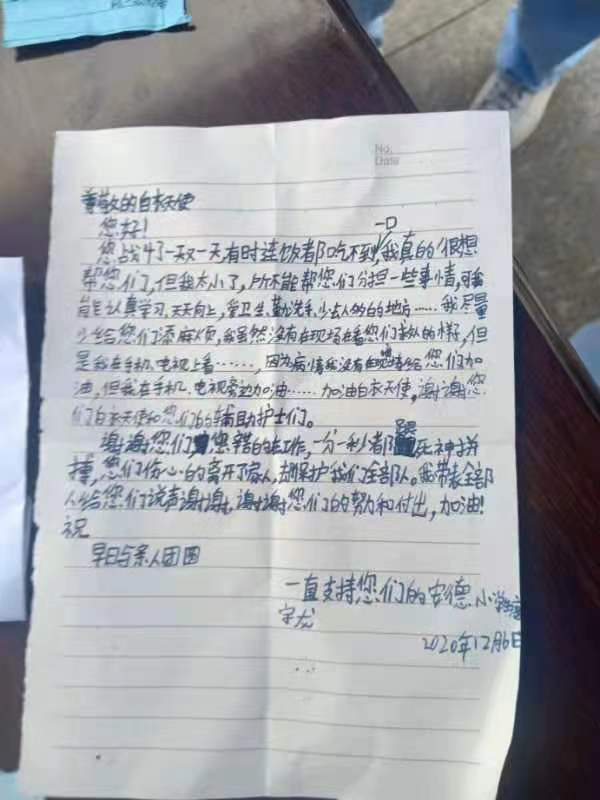 No.
Date
尊敬的白衣天使
您好!
您战斗了一天又一天有时连饭都吃不到一口,我真的很想
帮您们,但我太小了,所不能帮您们分担一些事情,可我
能认真学习,天天向上,爱卫生、勤洗手、少去人多的地方……我尽量
少给您们添麻烦,我虽然没有在现场在看您们救人的样子,但
是我在手机、电视上看……,因为病情我没有在现场给您们加
油,但我在手机、电视旁边加油……加油白衣天使,谢谢您
们白衣天使和您们的辅助护士们。
谢谢您们,您辛苦的在工作,一分一秒都跟死神拼
搏,您们伤心的离开了家人,却保护我们全部队。我带表全部
人给您们说声谢谢,谢谢您们的努力和付出,加油!
祝
早日与亲人团圆
一直支持您们的安德小
宇龙
2020年12月6日